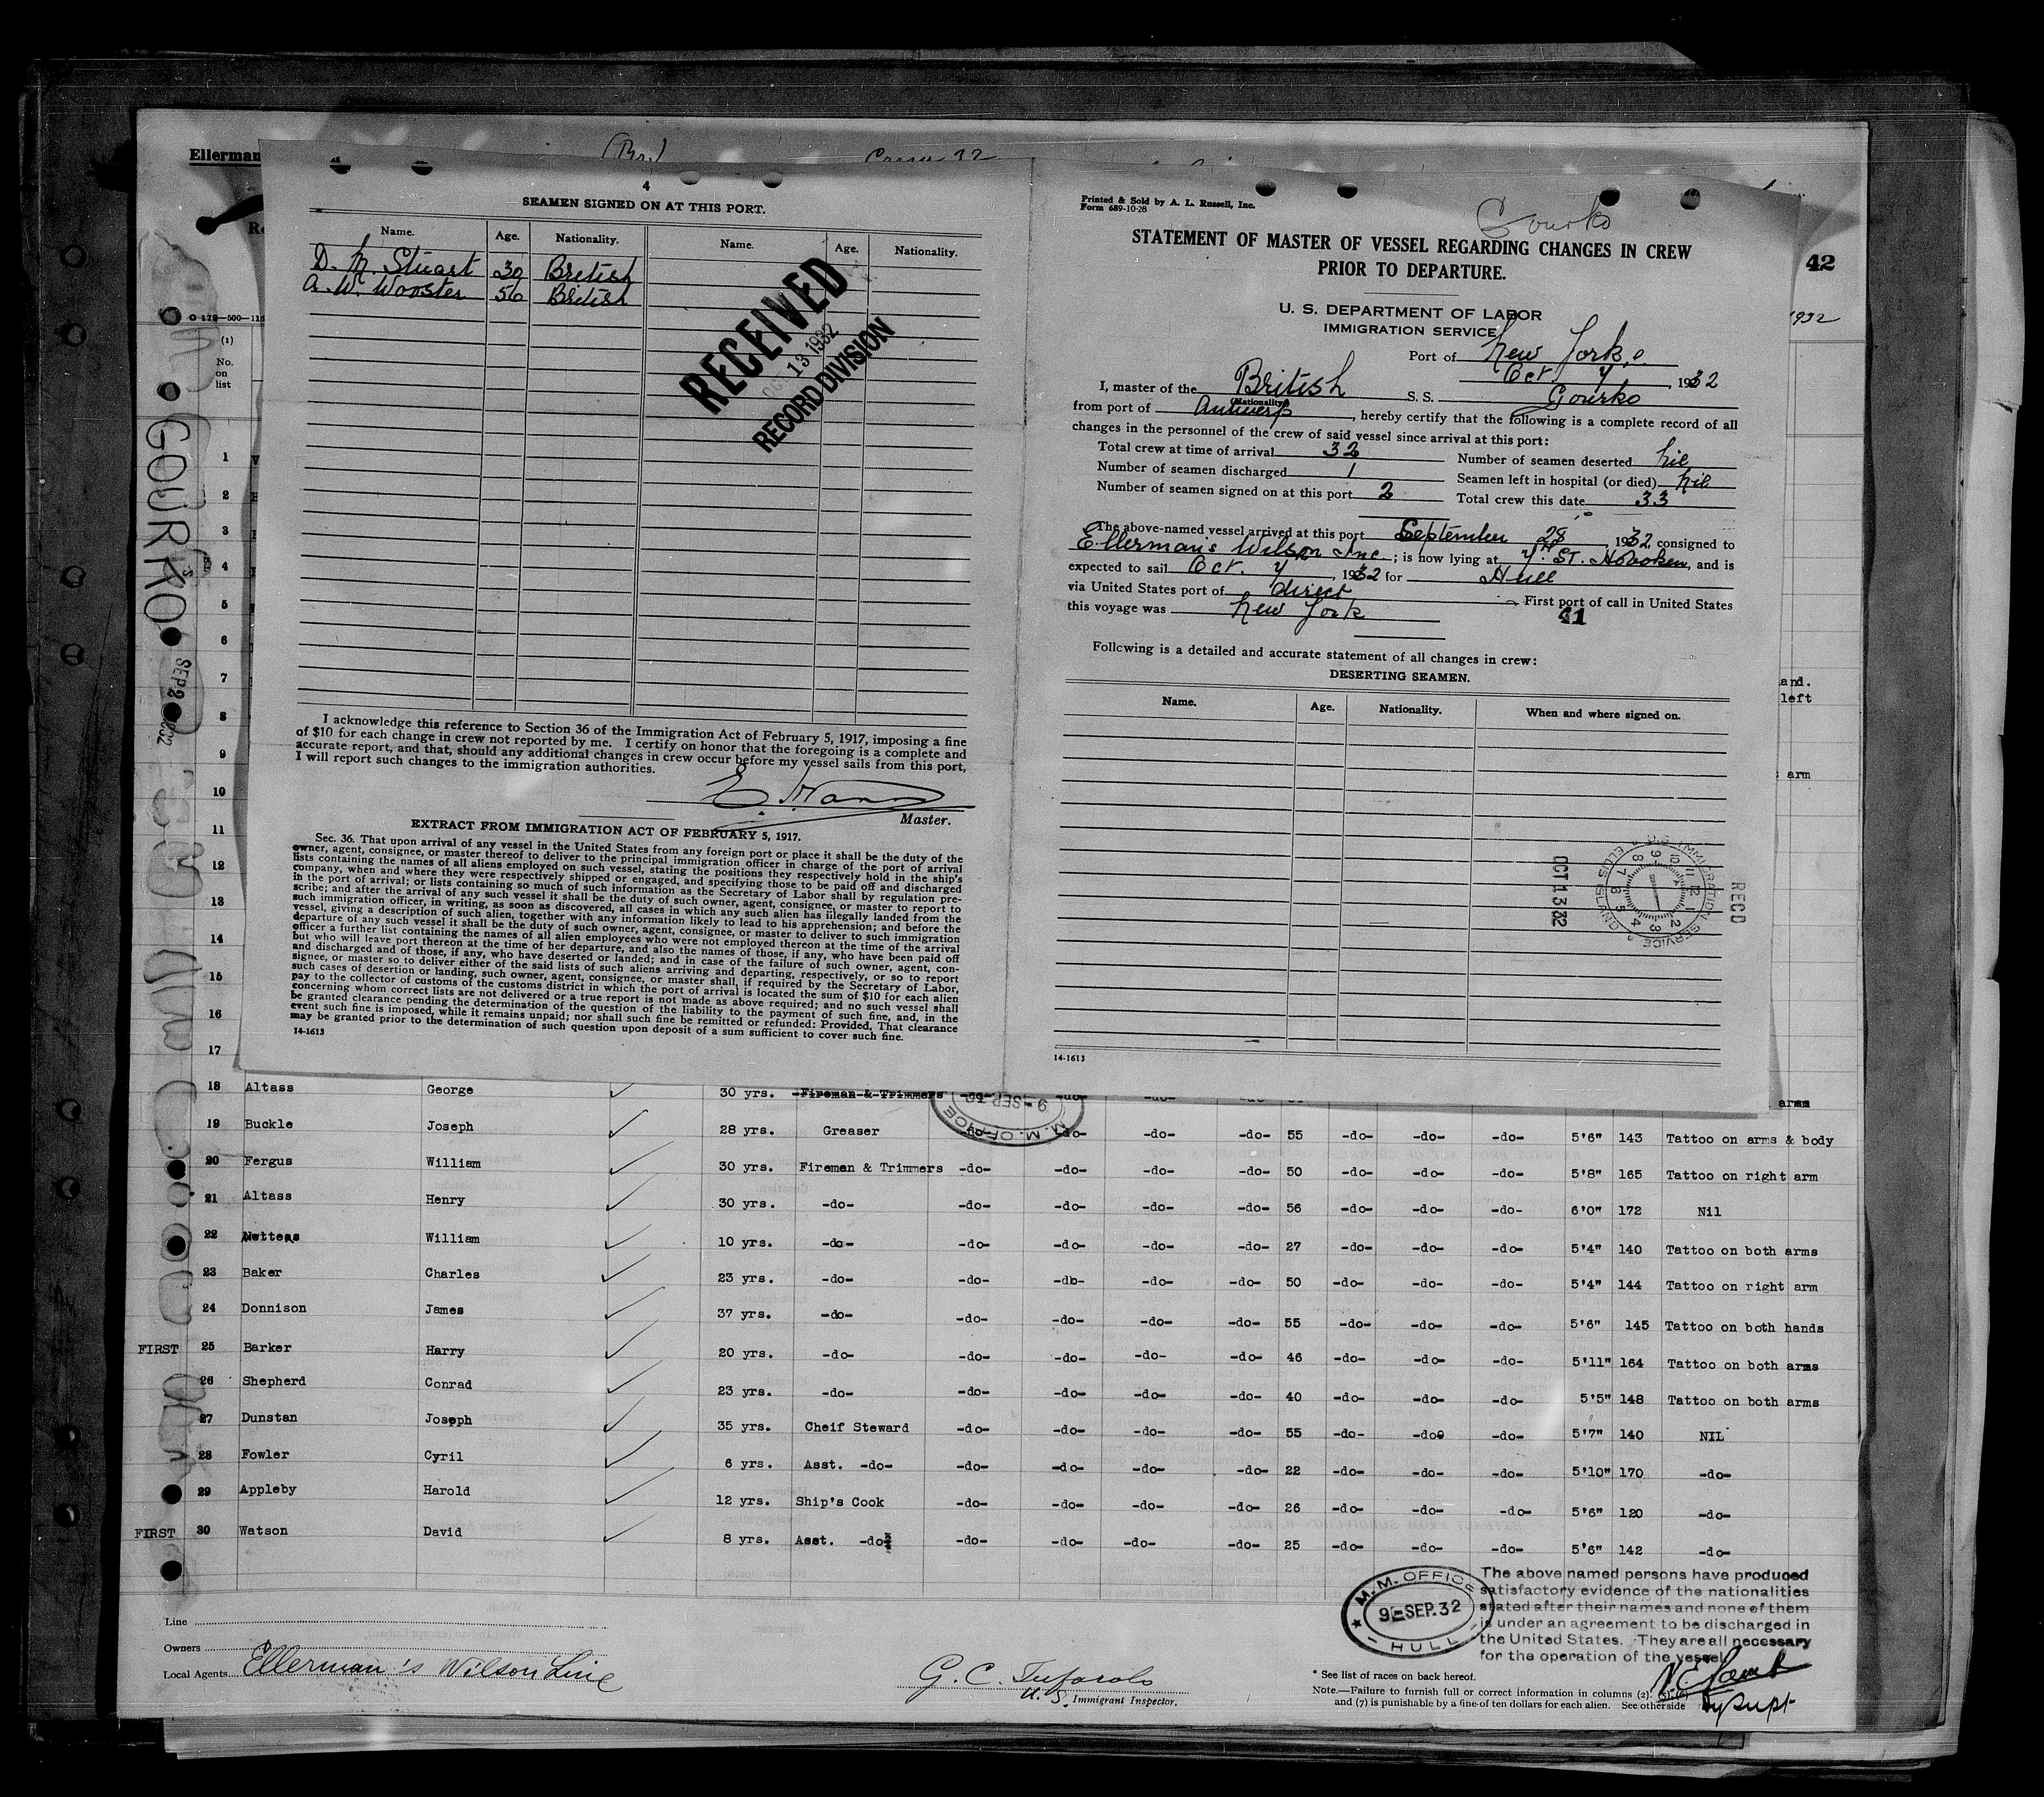 Ellerman
(Br.)
Crew 32
4
SEAMEN SIGNED ON AT THIS PORT.
Name. Age. Nationality. Name. Age. Nationality.
D. M. Stuart 39 British
A. W. Wooster 56 British
RECEIVED
13 1932
RECORD DIVISION
I acknowledge this reference to Section 36 of the Immigration Act of February 5, 1917, imposing a fine
of $10 for each change in crew not reported by me. I certify on honor that the foregoing is a complete and
accurate report, and that, should any additional changes in crew occur before my vessel sails from this port,
I will report such changes to the immigration authorities.
Master.
EXTRACT FROM IMMIGRATION ACT OF FEBRUARY 5, 1917.
Sec. 36. That upon arrival of any vessel in the United States from any foreign port or place it shall be the duty of the
owner, agent, consignee, or master thereof to deliver to the principal immigration officer in charge of the port of arrival
lists containing the names of all aliens employed on such vessel, stating the positions they respectively hold in the ship's
company, when and where they were respectively shipped or engaged, and specifying those to be paid off and discharged
in the port of arrival; or lists containing so much of such information as the Secretary of Labor shall by regulation pre-
scribe; and after the arrival of any such vessel it shall be the duty of such owner, agent, consignee, or master to report to
such immigration officer, in writing, as soon as discovered, all cases in which any such alien has illegally landed from the
vessel, giving a description of such alien, together with any information likely to lead to his apprehension; and before the
departure of any such vessel it shall be the duty of such owner, agent, consignee, or master to deliver to such immigration
officer a further list containing the names of all alien employees who were not employed thereon at the time of the arrival
but who will leave port thereon at the time of her departure, and also the names of those, if any, who have been paid off
and discharged and of those, if any, who have deserted or landed; and in case of the failure of such owner, agent, con-
signee, or master so to deliver either of the said lists of such aliens arriving and departing, respectively, or so to report
such cases of desertion or landing, such owner, agent, consignee, or master shall, if required by the Secretary of Labor,
pay to the collector of customs of the customs district in which the port of arrival is located the sum of $10 for each alien
concerning whom correct lists are not delivered or a true report is not made as above required; and no such vessel shall
be granted clearance pending the determination of the question of the liability to the payment of such fine, and, in the
event such fine is imposed, while it remains unpaid; nor shall such fine be remitted or refunded: Provided, That clearance
may be granted prior to the determination of such question upon deposit of a sum sufficient to cover such fine.
14-1613
Printed & Sold by A. L. Russell, Inc.
Form 689-10-28
Gourko
STATEMENT OF MASTER OF VESSEL REGARDING CHANGES IN CREW
PRIOR TO DEPARTURE.
U. S. DEPARTMENT OF LABOR
IMMIGRATION SERVICE
Port of New York,
Oct. 7, 1932
I, master of the British S. S. Gourko
(Nationality)
from port of Antwerp, hereby certify that the following is a complete record of all
changes in the personnel of the crew of said vessel since arrival at this port:
Total crew at time of arrival 32 Number of seamen deserted nil
Number of seamen discharged 1 Seamen left in hospital (or died) nil
Number of seamen signed on at this port 2 Total crew this date 33
The above-named vessel arrived at this port September 28, 1932, consigned to
Ellerman's Wilson Inc.; is now lying at 7th ST. Hoboken, and is
expected to sail Oct. 7, 1932 for Hull
via United States port of direct First port of call in United States
this voyage was New York
41
Following is a detailed and accurate statement of all changes in crew:
DESERTING SEAMEN.
Name. Age. Nationality. When and where signed on.
REC'D
OCT 13 32
U.S. IMMIGRATION SERVICE ELLIS ISLAND
14-1613
42
1932
and.
left
arm
GOURKO
SEP 2 1932
O 178—500—11
(1)
No.
on
list
1
2
3
4
5
6
7
8
9
10
11
12
13
14
15
16
17
18 Altass George 30 yrs. Fireman & Trimmers -do- -do- -do- -do- arms
19 Buckle Joseph 28 yrs. Greaser -do- -do- -do- -do- 55 -do- -do- -do- 5'6" 143 Tattoo on arms & body
20 Fergus William 30 yrs. Firemen & Trimmers -do- -do- -do- -do- 50 -do- -do- -do- 5'8" 165 Tattoo on right arm
21 Altass Henry 30 yrs. -do- -do- -do- -do- -do- 56 -do- -do- -do- 6'0" 172 Nil
22 William 10 yrs. -do- -do- -do- -do- -do- 27 -do- -do- -do- 5'4" 140 Tattoo on both arms
23 Baker Charles 23 yrs. -do- -do- -db- -do- -do- 50 -do- -do- -do- 5'4" 144 Tattoo on right arm
24 Donnison James 37 yrs. -do- -do- -do- -do- -do- 55 -do- -do- -do- 5'6" 145 Tattoo on both hands
FIRST 25 Barker Harry 20 yrs. -do- -do- -do- -do- -do- 46 -do- -do- -do- 5'11" 164 Tattoo on both arms
26 Shepherd Conrad 23 yrs. -do- -do- -do- -do- -do- 40 -do- -do- -do- 5'5" 148 Tattoo on both arms
27 Dunstan Joseph 35 yrs. Cheif Steward -do- -do- -do- -do- 55 -do- -do- -do- 5'7" 140 NIL
28 Fowler Cyril 6 yrs. Asst. -do- -do- -do- -do- -do- 22 -do- -do- -do- 5'10" 170 -do-
29 Appleby Harold 12 yrs. Ship's Cook -do- -do- -do- -do- 26 -do- -do- -do- 5'6" 120 -do-
FIRST 30 Watson David 8 yrs. Asst. -do- -do- -do- -do- -do- 25 -do- -do- -do- 5'6" 142 -do-
M.M. OFFICE
9-SEP.32
M.M. OFFICE
9-SEP.32
HULL
The above named persons have produced
satisfactory evidence of the nationalities
stated after their names and none of them
is under an agreement to be discharged in
the United States. They are all necessary
for the operation of the vessel
Line
Owners
Local Agents Ellerman's Wilson Line
G. C. Tufarolo
U. S. Immigrant Inspector.
* See list of races on back hereof.
Note.—Failure to furnish full or correct information in columns (2), (5), (6)
and (7) is punishable by a fine of ten dollars for each alien. See other side
Dy Supt